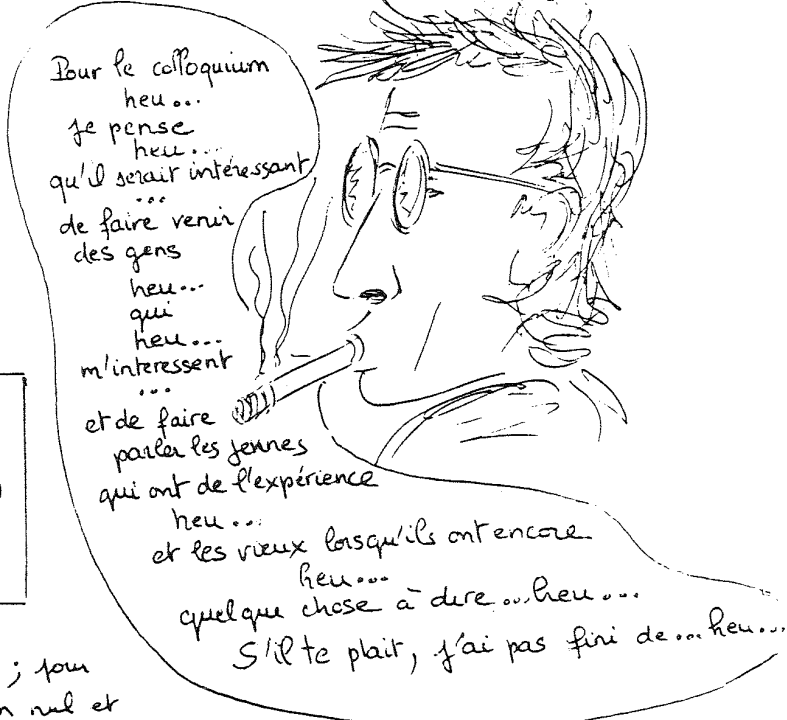 Pour le colloquium
heu...
je pense
heu...
qu'il serait intéressant
...
de faire venir
des gens
heu...
qui
heu...
m'interessent
...
et de faire
parler les jeunes
qui ont de l'expérience
heu...
et les vieux lorsqu'ils ont encore
heu...
quelque chose à dire...heu...
S'il te plait, j'ai pas fini de...heu...
; pour
nul et